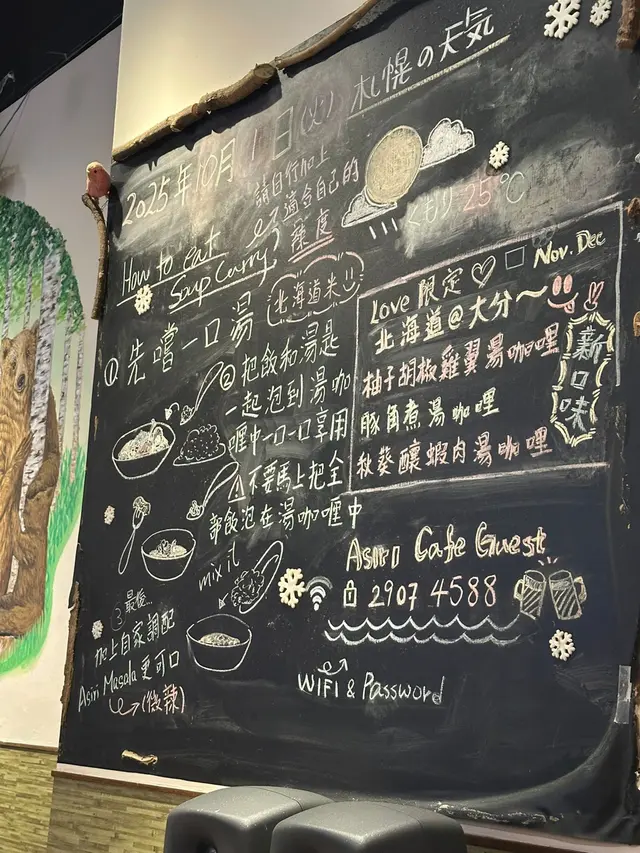 2025年10月1日(火) 札幌の天気
請自行加上
適合自己的
辣度
くもり 25°C
How to eat
Soup Curry?
北海道米
① 先嚐一口湯
② 把飯和湯匙
一起泡到湯咖
喱中一口一口享用
⚠不要馬上把全
部飯泡在湯咖喱中
mix it
③ 最後..
加上自家調配
Asiri Masala 更可口
(後辣)
Love 限定♡ □ Nov. Dec
北海道@大分～
柚子胡椒雞翼湯咖哩
豚角煮湯咖哩
秋葵釀蝦肉湯咖哩
新口味
Asiri Cafe Guest
2907 4588
WiFi & Password